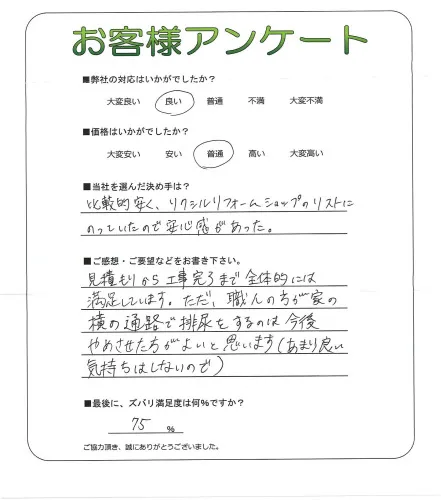 お客様アンケート
■弊社の対応はいかがでしたか?
大変良い 良い 普通 不満 大変不満
■価格はいかがでしたか?
大変安い 安い 普通 高い 大変高い
■当社を選んだ決め手は?
比較的安く、リクシルリフォームショップのリストに
のっていたので安心感があった。
■ご感想・ご要望などをお書き下さい。
見積もりから工事完了まで全体的には
満足しています。ただ、職人の方が家の
横の通路で排尿をするのは今後
やめさせた方がよいと思います(あまり良い
気持ちはしないので)
■最後に、ズバリ満足度は何%ですか?
75 %
ご協力頂き、誠にありがとうございました。